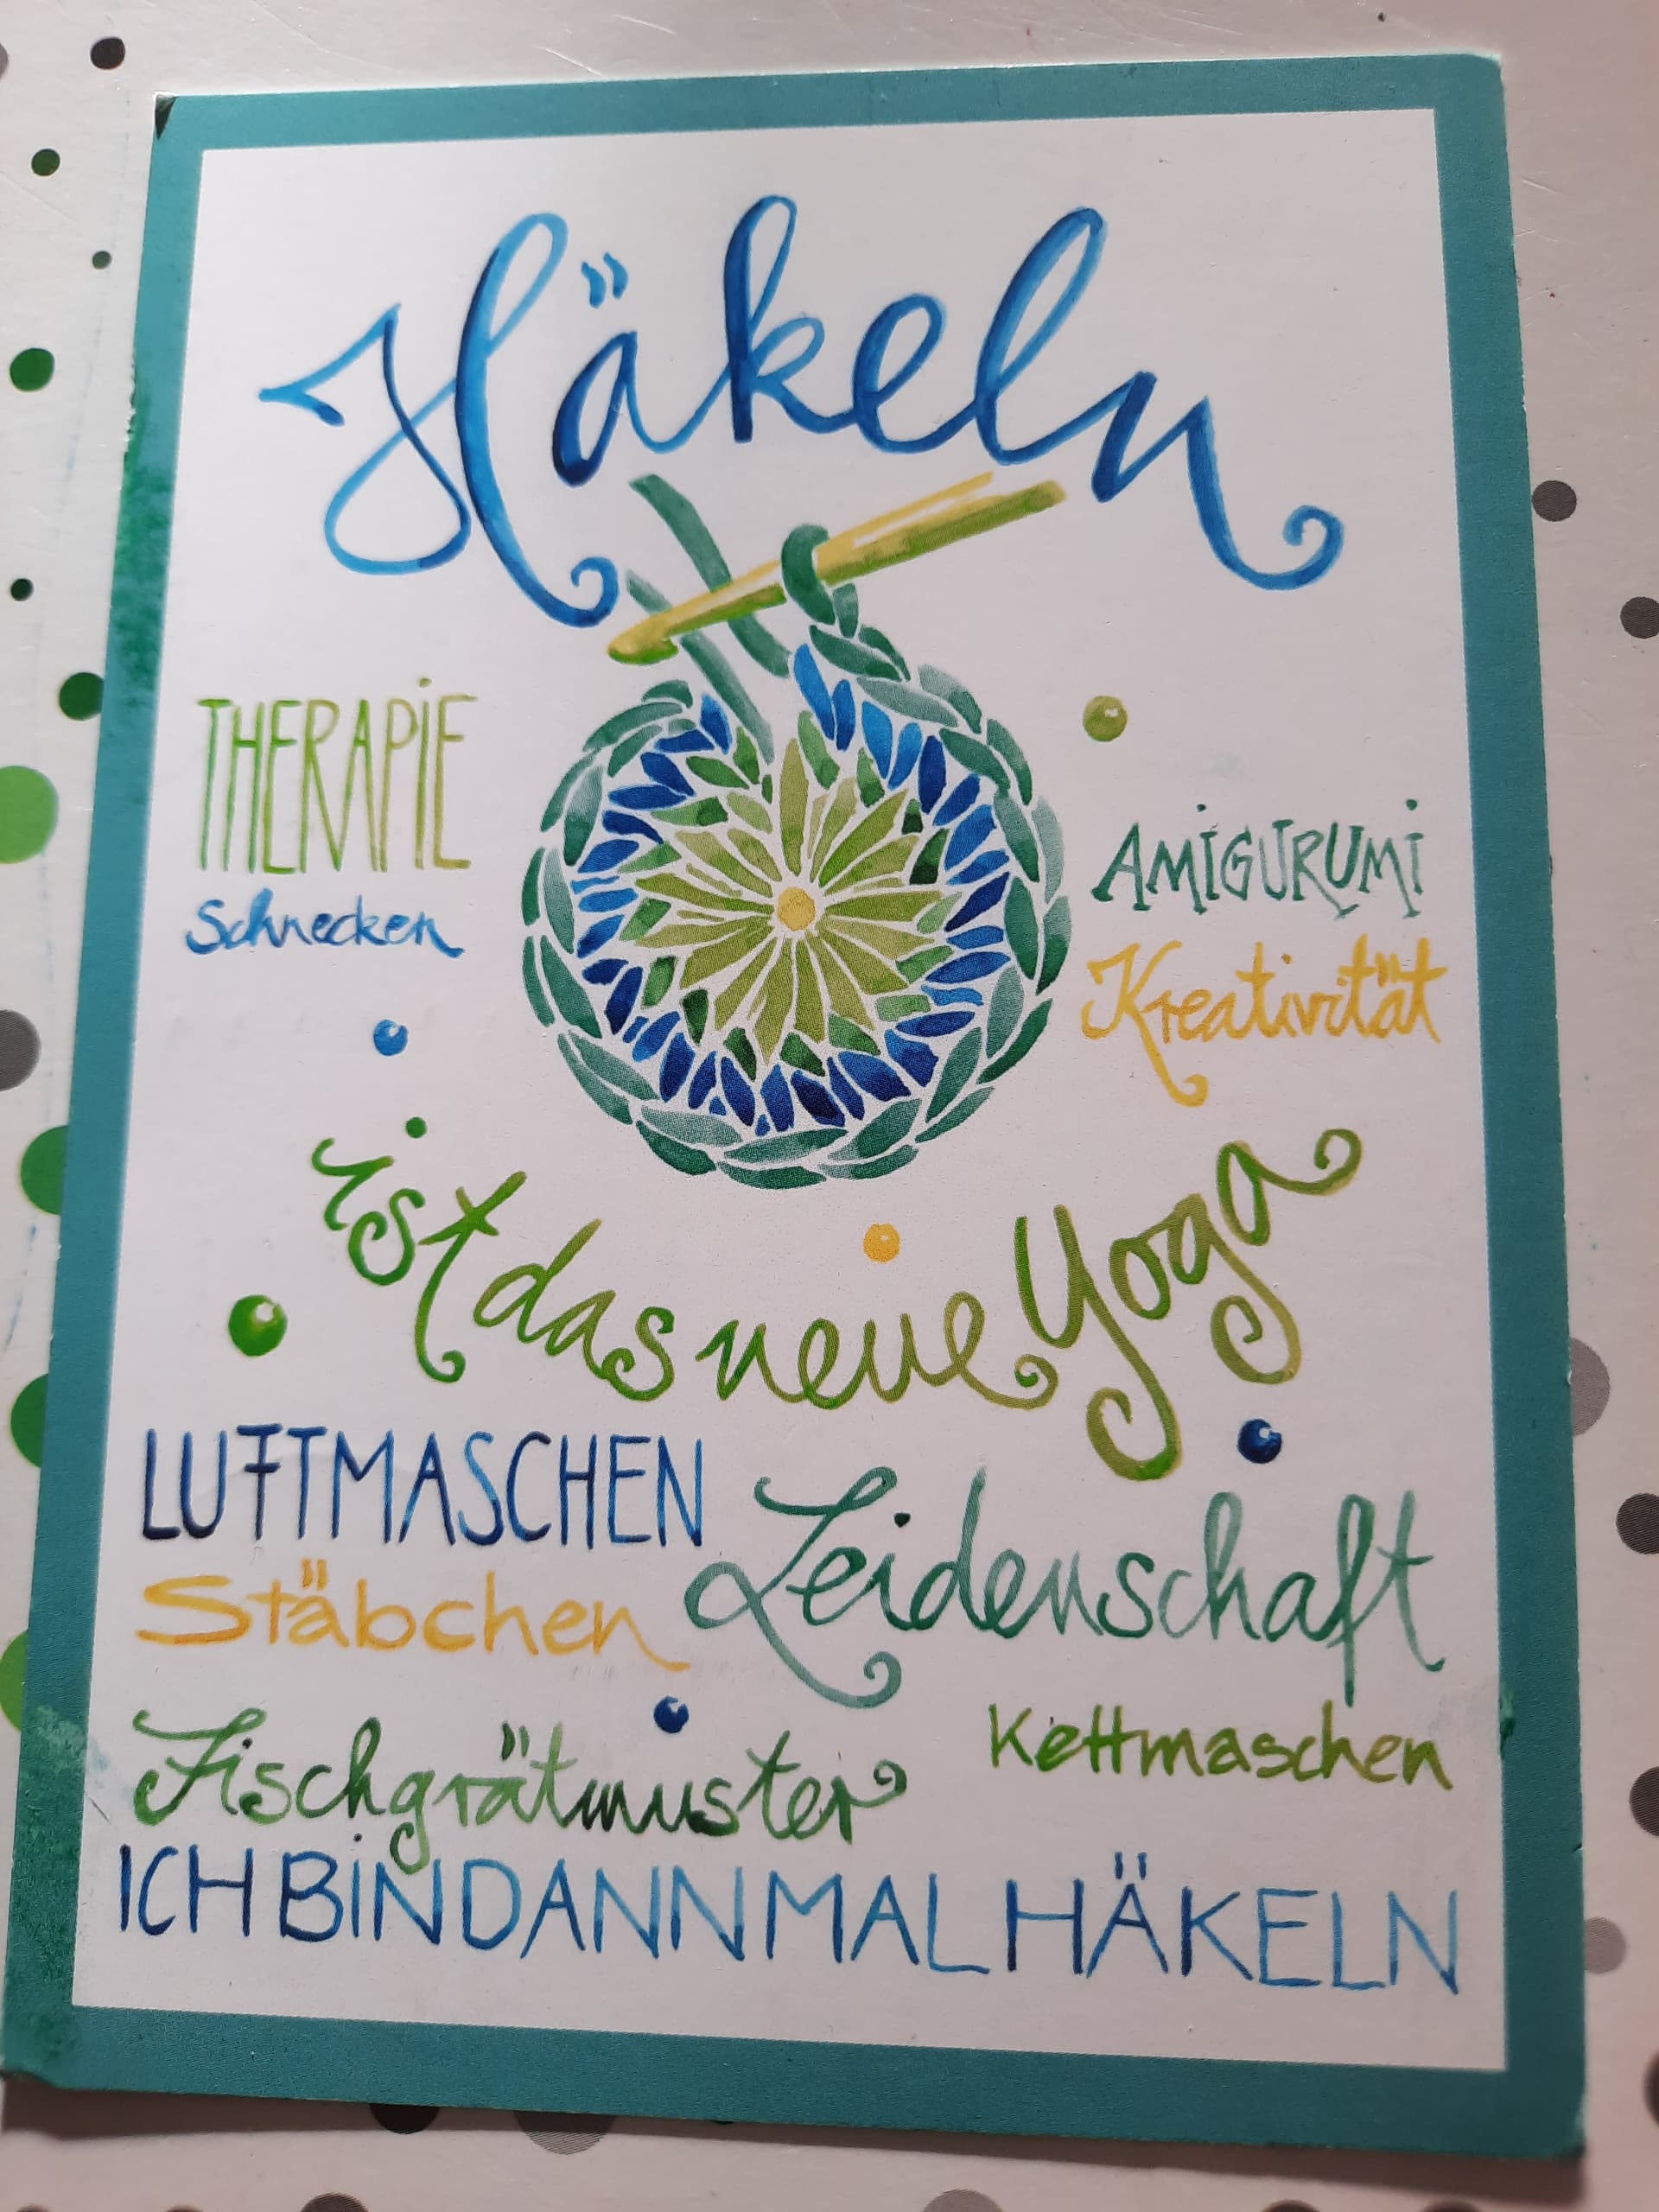 Häkeln
THERAPiE
Schnecken
AMiGURUMi
Kreativität
ist das neue Yoga
LUFTMASCHEN
Leidenschaft
Stäbchen
Kettmaschen
Fischgrätmuster
ICH BiN DANN MAL HÄKELN